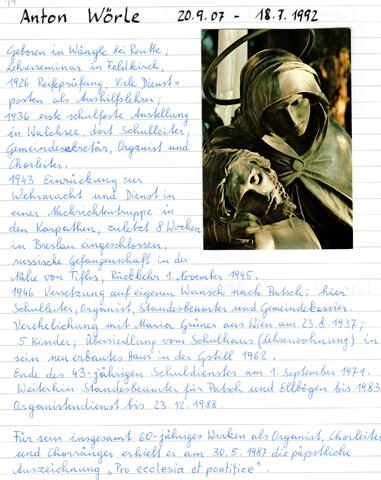 Anton Wörle 20.9.07 - 18.7.1992
Geboren in Wängle bei Reutte;
Lehrerseminar in Feldkirch,
1926 Reifeprüfung. Viele Dienst=
posten als Aushilfslehrer;
1936 erste schulfeste Anstellung
in Walchsee, dort Schulleiter,
Gemeindesekretär, Organist und
Chorleiter.
1943 Einrückung zur
Wehrmacht und Dienst in
einer Nachrichtentruppe in
den Karpathen, zuletzt 8 Wochen
in Breslau eingeschlossen,
russische Gefangenschaft in der
Nähe von Tiflis, Rückkehr 1. November 1945.
1946 Versetzung auf eigenen Wunsch nach Patsch; hier
Schulleiter, Organist, Standesbeamter und Gemeindekassier.
Verehelichung mit Maria Grüner aus Wien am 23.8.1937;
5 Kinder; übersiedlung vom Schulhaus (Lehrerwohnung) in
sein neu erbautes Haus in der Gstill 1962.
Ende des 43-jährigen Schuldienstes am 1. September 1971.
Weiterhin Standesbeamter für Patsch und Ellbögen bis 1983
Organistendienst bis 23.12.1988.
Für sein insgesamt 60-jähriges Wirken als Organist, Chorleiter
und Chorsänger erhielt er am 30.5.1987 die päpstliche
Auszeichnung „Pro ecclesia et pontifice".